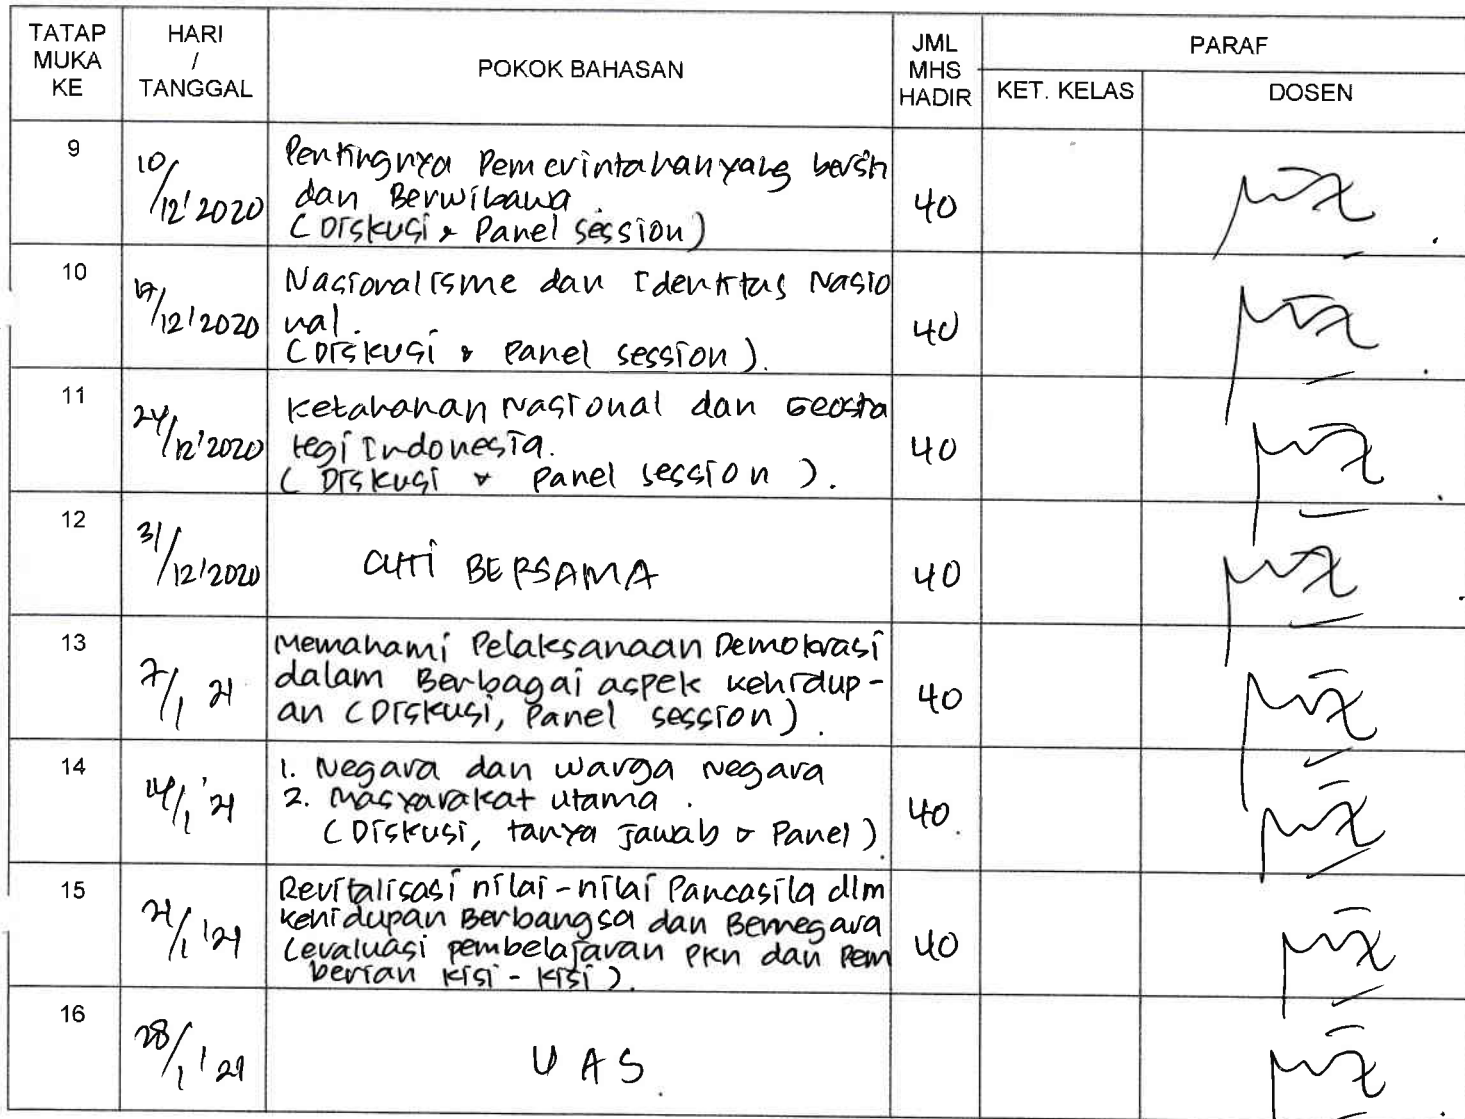 TATAP MUKA KE
HARI / TANGGAL
POKOK BAHASAN
JML MHS HADIR
PARAF
KET. KELAS
DOSEN
9
10/12'2020
Pentingnya Pemerintahan yang bersih
dan Berwibawa.
(Diskusi & Panel session)
40
10
17/12'2020
Nasionalisme dan Identitas Nasio
nal.
(Diskusi & Panel session).
40
11
24/12'2020
Ketahanan Nasional dan Geostra
tegi Indonesia.
(Diskusi & Panel session).
40
12
31/12'2020
CUTI BERSAMA
40
13
7/1 21
Memahami Pelaksanaan Demokrasi
dalam Berbagai aspek kehidup-
an (Diskusi, Panel session).
40
14
14/1 '21
1. Negara dan warga negara
2. Masyarakat utama.
(Diskusi, tanya jawab & Panel).
40.
15
21/1 '21
Revitalisasi nilai-nilai Pancasila dlm
kehidupan Berbangsa dan Bernegara
(evaluasi pembelajaran PKn dan Pem
berian kisi-kisi).
40
16
28/1 '21
UAS.